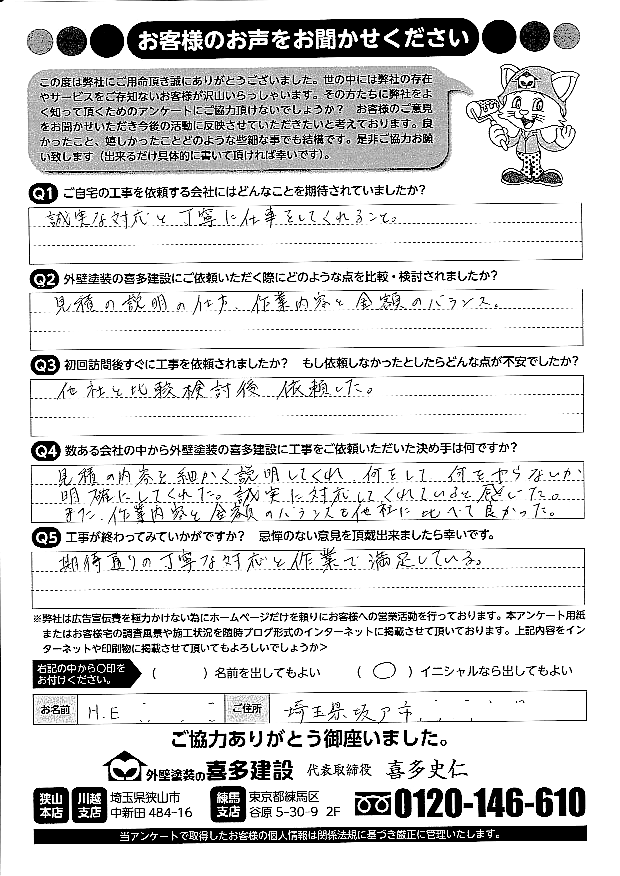 お客様のお声をお聞かせください
この度は弊社にご用命頂き誠にありがとうございました。世の中には弊社の存在
やサービスをご存知ないお客様が沢山いらっしゃいます。その方たちに弊社をよ
く知って頂くためのアンケートにご協力頂けないでしょうか？ お客様のご意見
をお聞かせいただき今後の活動に反映させていただきたいと考えております。良
かったこと、嬉しかったことどのような些細な事でも結構です。是非ご協力お願
い致します（出来るだけ具体的に書いて頂ければ幸いです）。
Q1 ご自宅の工事を依頼する会社にはどんなことを期待されていましたか？
誠実な対応と丁寧に仕事をしてくれること。
Q2 外壁塗装の喜多建設にご依頼いただく際にどのような点を比較・検討されましたか？
見積の説明の仕方、作業内容と金額のバランス。
Q3 初回訪問後すぐに工事を依頼されましたか？ もし依頼しなかったとしたらどんな点が不安でしたか？
他社と比較検討後 依頼した。
Q4 数ある会社の中から外壁塗装の喜多建設に工事をご依頼いただいた決め手は何ですか？
見積の内容を細かく説明してくれ 何をして 何をやらないか
明確にしてくれた。誠実に対応してくれていると感じた。
また 作業内容と金額のバランスも他社に比べて良かった。
Q5 工事が終わってみていかがですか？ 忌憚のない意見を頂戴出来ましたら幸いです。
期待通りの丁寧な対応と作業で満足している。
※弊社は広告宣伝費を極力かけない為にホームページだけを頼りにお客様への営業活動を行っております。本アンケート用紙
またはお客様宅の調査風景や施工状況を随時ブログ形式のインターネットに掲載させて頂いております。上記内容をイン
ターネットや印刷物に掲載させて頂いてもよろしいでしょうか>
右記の中から○印を
お付けください。
（ ）名前を出してもよい （ ○ ）イニシャルなら出してもよい
お名前 H.E ご住所 埼玉県坂戸市
ご協力ありがとう御座いました。
外壁塗装の喜多建設 代表取締役 喜多史仁
狭山本店 川越支店 埼玉県狭山市 中新田 484-16
練馬支店 東京都練馬区 谷原 5-30-9 2F
0120-146-610
当アンケートで取得したお客様の個人情報は関係法規に基づき厳正に管理いたします。